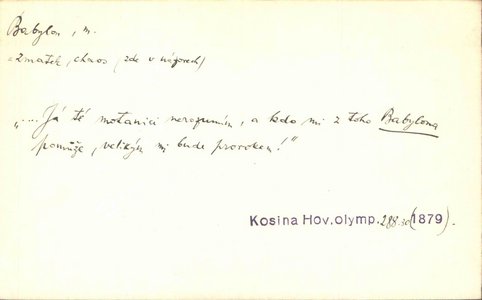 Babylon, m.
= zmatek, chaos (zde v názorech)
„... Já té motanici nerozumím, a kdo mi z toho Babylona
pomůže, velikým mi bude prorokem!"
Kosina Hov. olymp. 288.30 (1879).